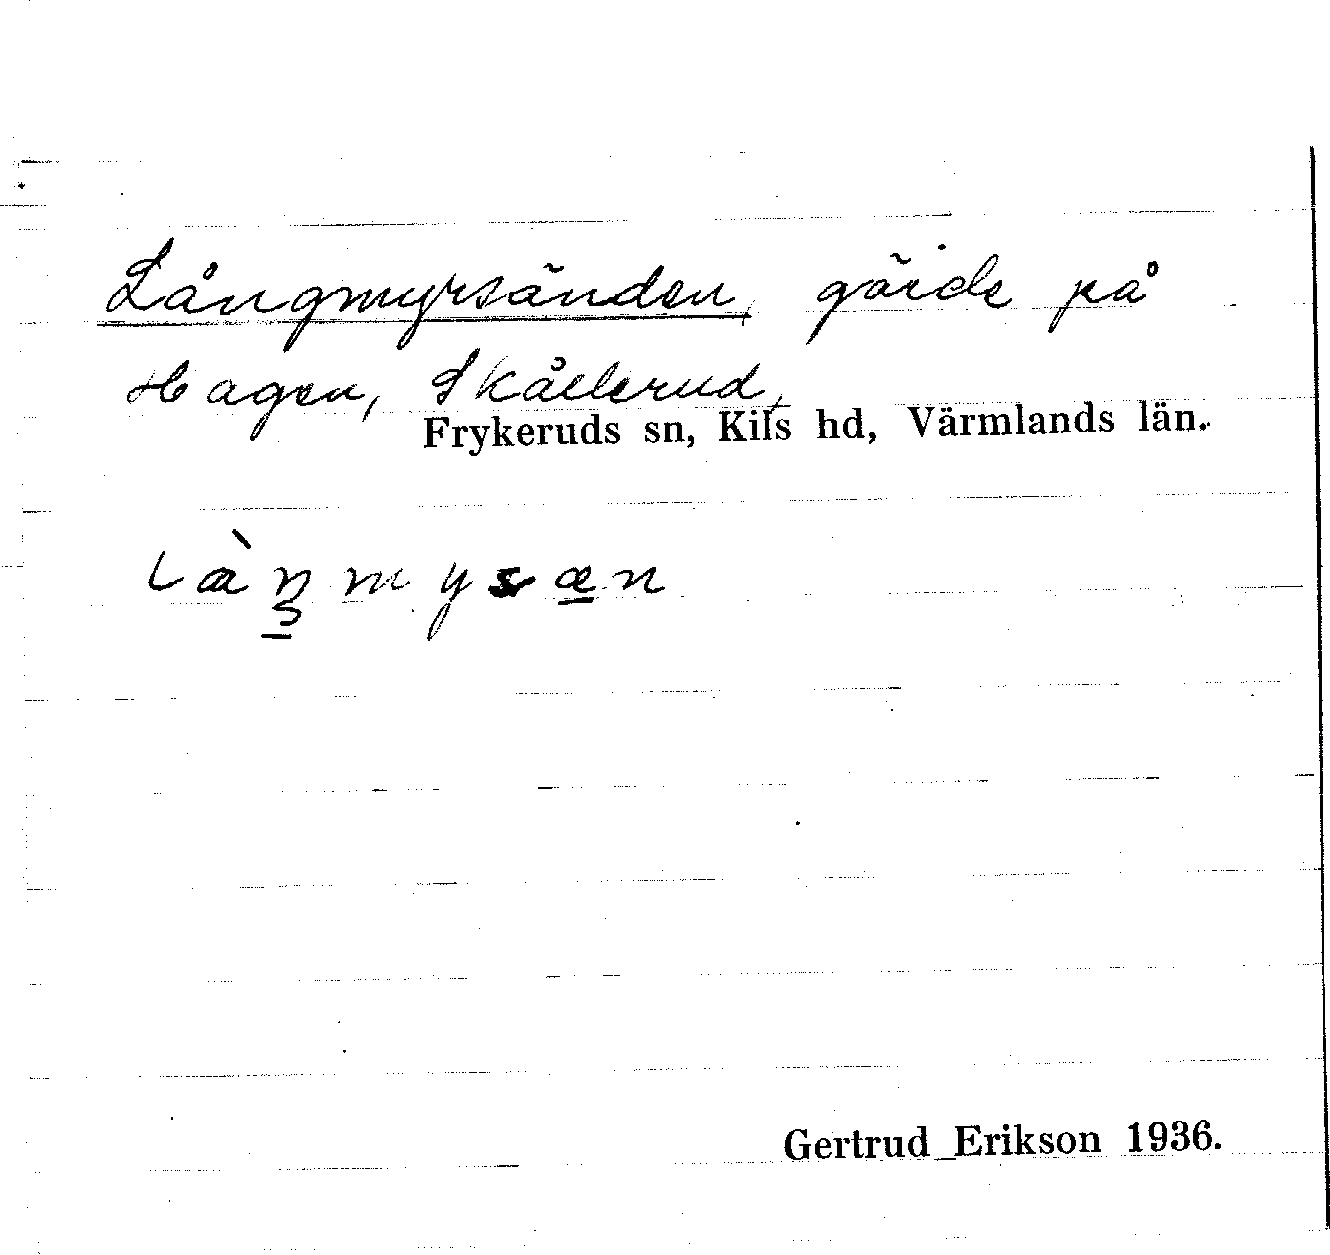 Långmyrsänden, gärde på
Hagen, Skållerud,
Frykeruds sn, Kils hd, Värmlands län.
Gertrud Erikson 1936.